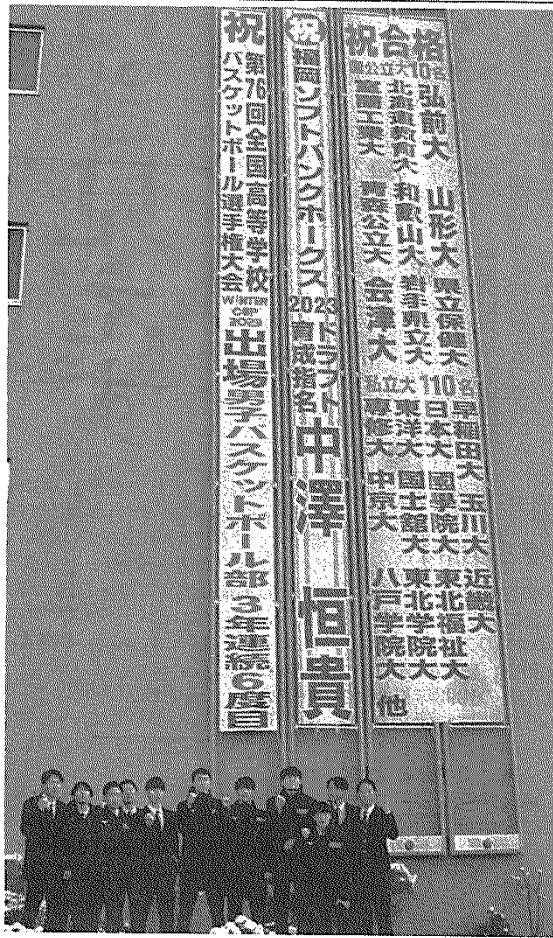 祝合格
国公立大10名
弘前大 山形大 県立保健大
北海道教育大 和歌山大 岩手県立大
室蘭工業大 青森公立大 会津大
私立大110名
早稲田大 玉川大 近畿大
日本大 國學院大 東北福祉大
東洋大 国士舘大 東北学院大
専修大 中京大 八戸学院大 他
㊗福岡ソフトバンクホークス
2023
ドラフト
育成指名
中澤 恒貴
祝
第76回全国高等学校
バスケットボール選手権大会
WINTER
CUP
2023
出場男子バスケットボール部 3年連続6度目